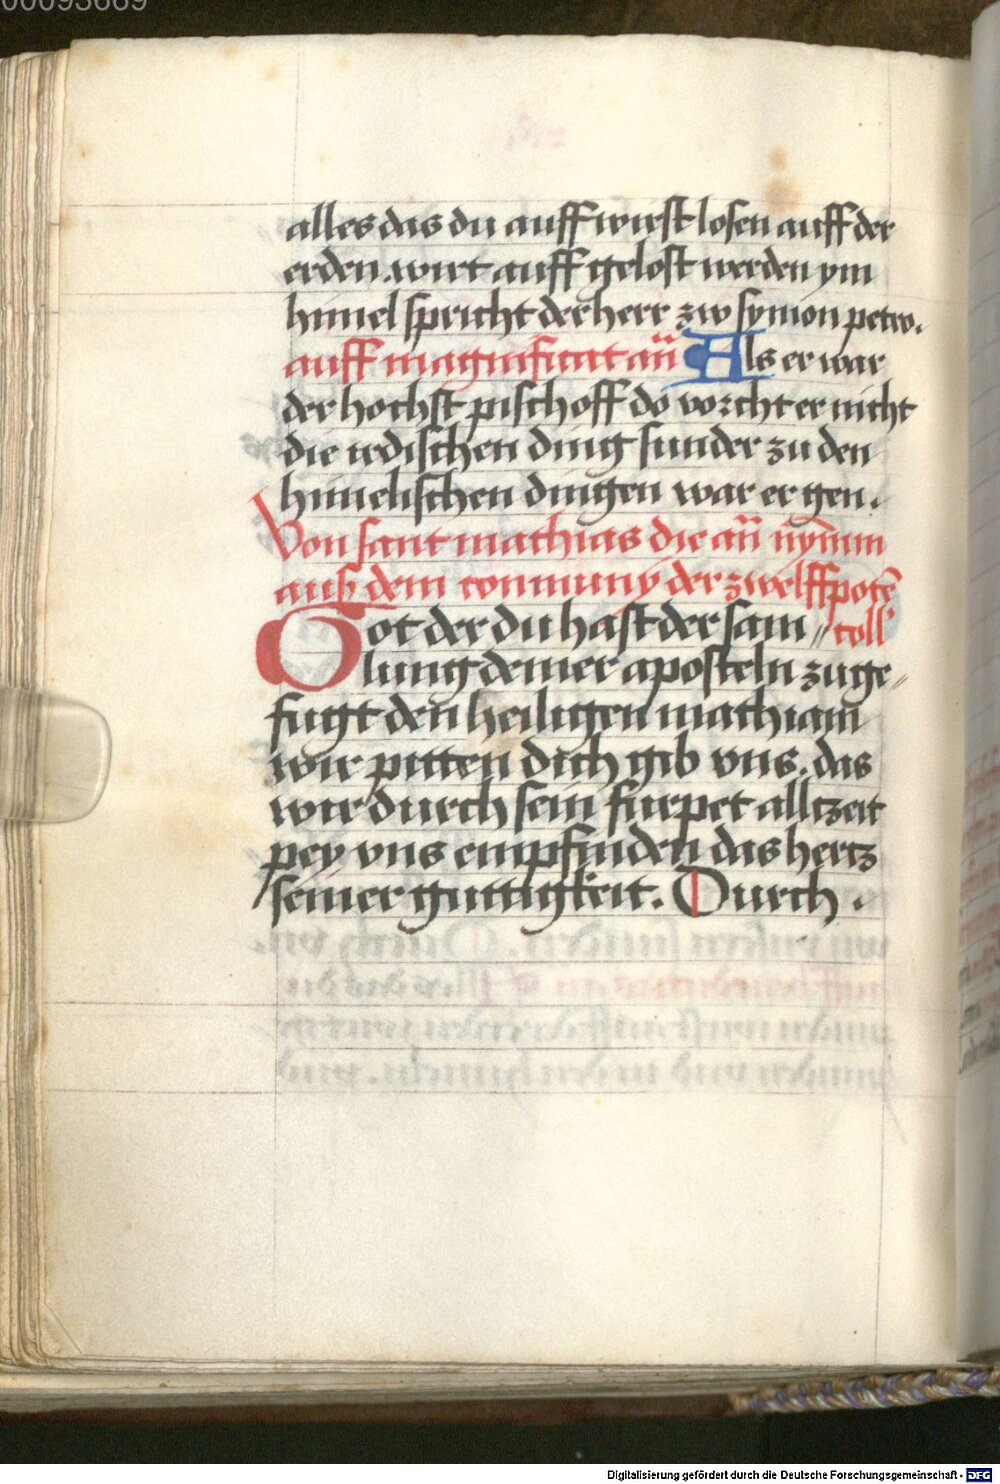 00093669
alles das du auff wirst losen auff der
erden. wirt auff gelost werden ym
himel spricht der herr zw symon petro.
auff magnificat añ Als er war
der hochst pischoff do vorcht er nicht
die irdischen ding sunder zu den
himelischen dingen war er gen.
Von sant mathias die añ nÿmm
auß dem communy der zwelffpotē
Got der du hast der sam〃 coll'
lung deiner aposteln zuge〃
fugt den heiligen mathiam
wir pitten dich gib vns. das
wir durch sein furpet alltzeit
pey vns empfinden das hertz
seiner guttigkeit. Durch.
Digitalisierung gefördert durch die Deutsche Forschungsgemeinschaft - DFG